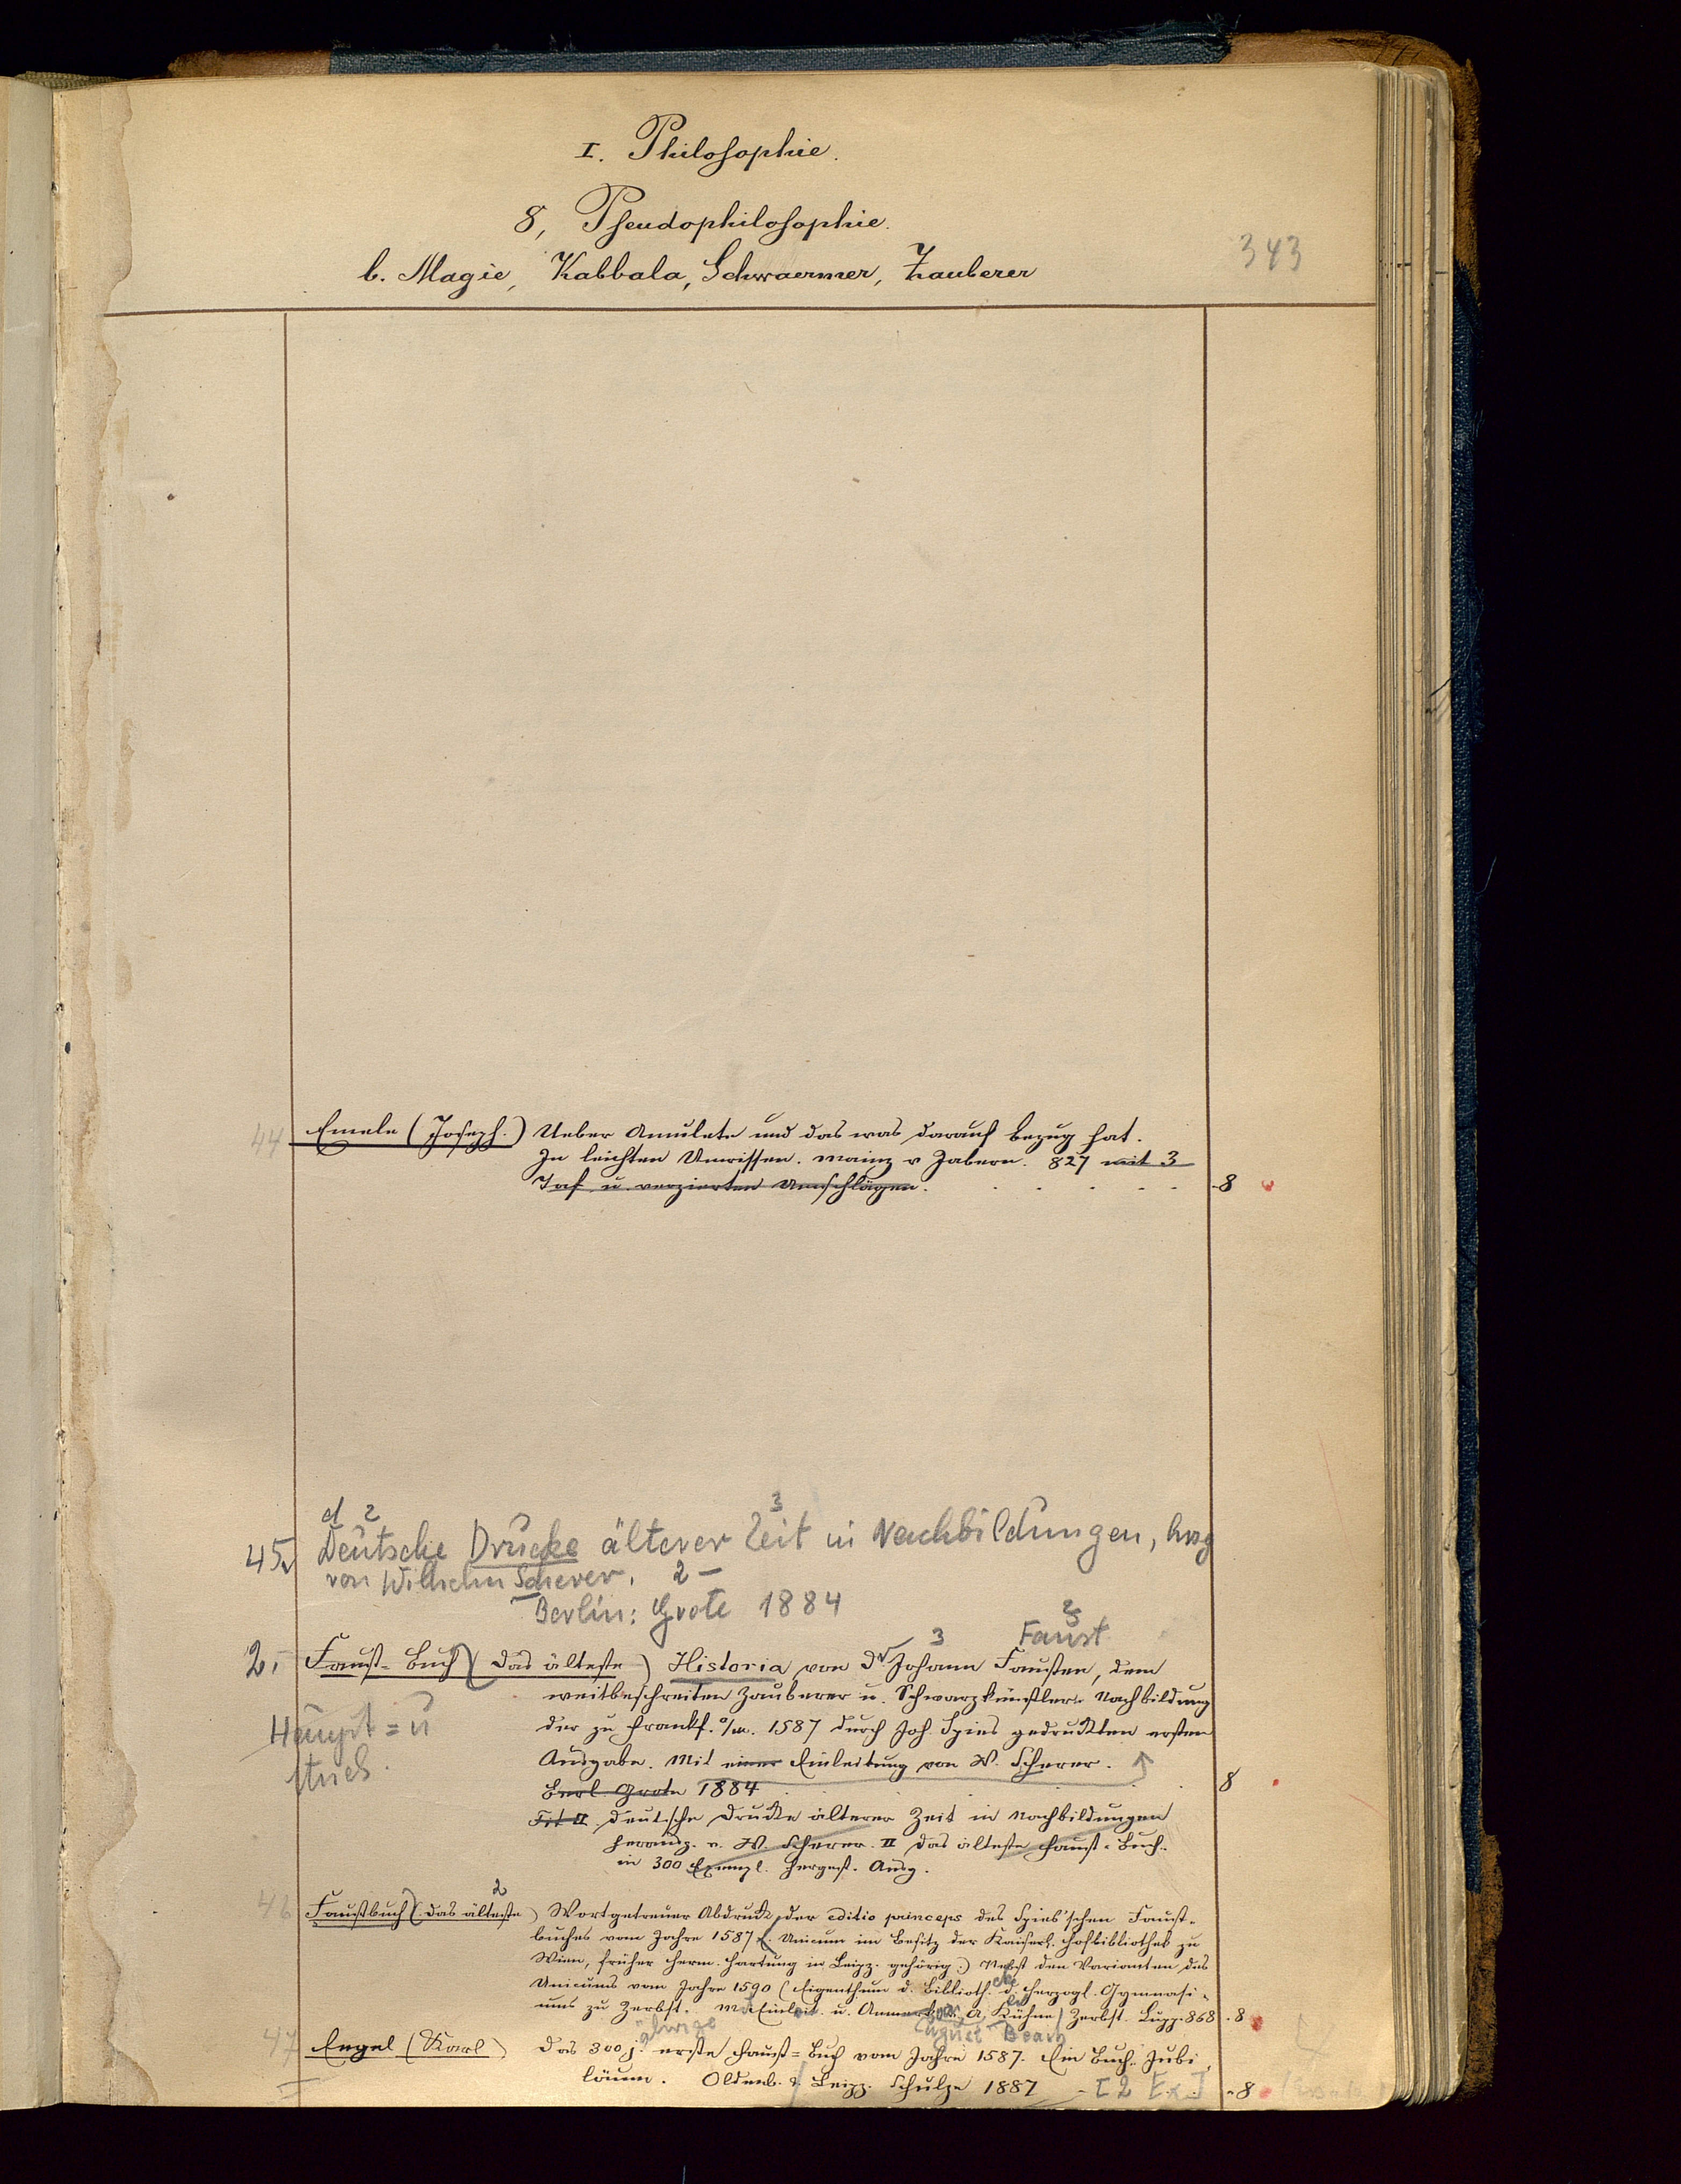 I. Philosophie.
8, Pseudophilosophie.
b. Magie, Kabbala, Schwaermer, Zauberer
343
44 Emele (Joseph.) Ueber Amulete und das was darauf Bezug hat.
In leichten Umrissen. Mainz v Zabern. 827 mit 3
Taf u. verzierten Umschlägen. 8
d 2 3
45. Deutsche Drucke älterer Zeit in Nachbildungen, hrsg
von Wilhelm Scherer. 2 –
Berlin: Grote 1884
3 Faust 2
2. Faust-Buch (das älteste) Historia von Dr Johann Fausten, dem
weitbeschreiten Zauberer u. Schwarzkünstler. Nachbildung
Haupt = u der zu Frankf. a/m. 1587 durch Joh. Spies gedruckten ersten
Ausgabe. Mit einer Einleitung von W. Scherer.
Berl. Grote 1884 8
Tit II. Deutsche Drucke älterer Zeit in Nachbildungen
herausg. v. W. Scherer. II das älteste Faust-Buch.
in 300 Exempl. hergest. Ausg.
2
46 Faustbuch (das älteste) Wortgetreuer Abdruck der editio princeps des Spies'schen Faust-
buches vom Jahre 1587 (Unicum im Besitz der Kaiserl. Hofbibliothek zu
Wien, früher Herrn Hartung in Leipz. gehörig.) Nebst den Varianten des
Unicums vom Jahre 1590 (Eigenthum d. Biblioth. d. Herzogl. Gymnasi-
ums zu Zerbst. Mit Einleit. u. Anmerk. A. Kühne) Zerbst. Lupp. 868. 8
ährige August
47 Engel (Karl) Das 300 j. erste Faust-Buch vom Jahre 1587. Ein Buch. Jubi
läum. Oldenb. & Leipz. Schulze 1887 - [2 Ex.] 8